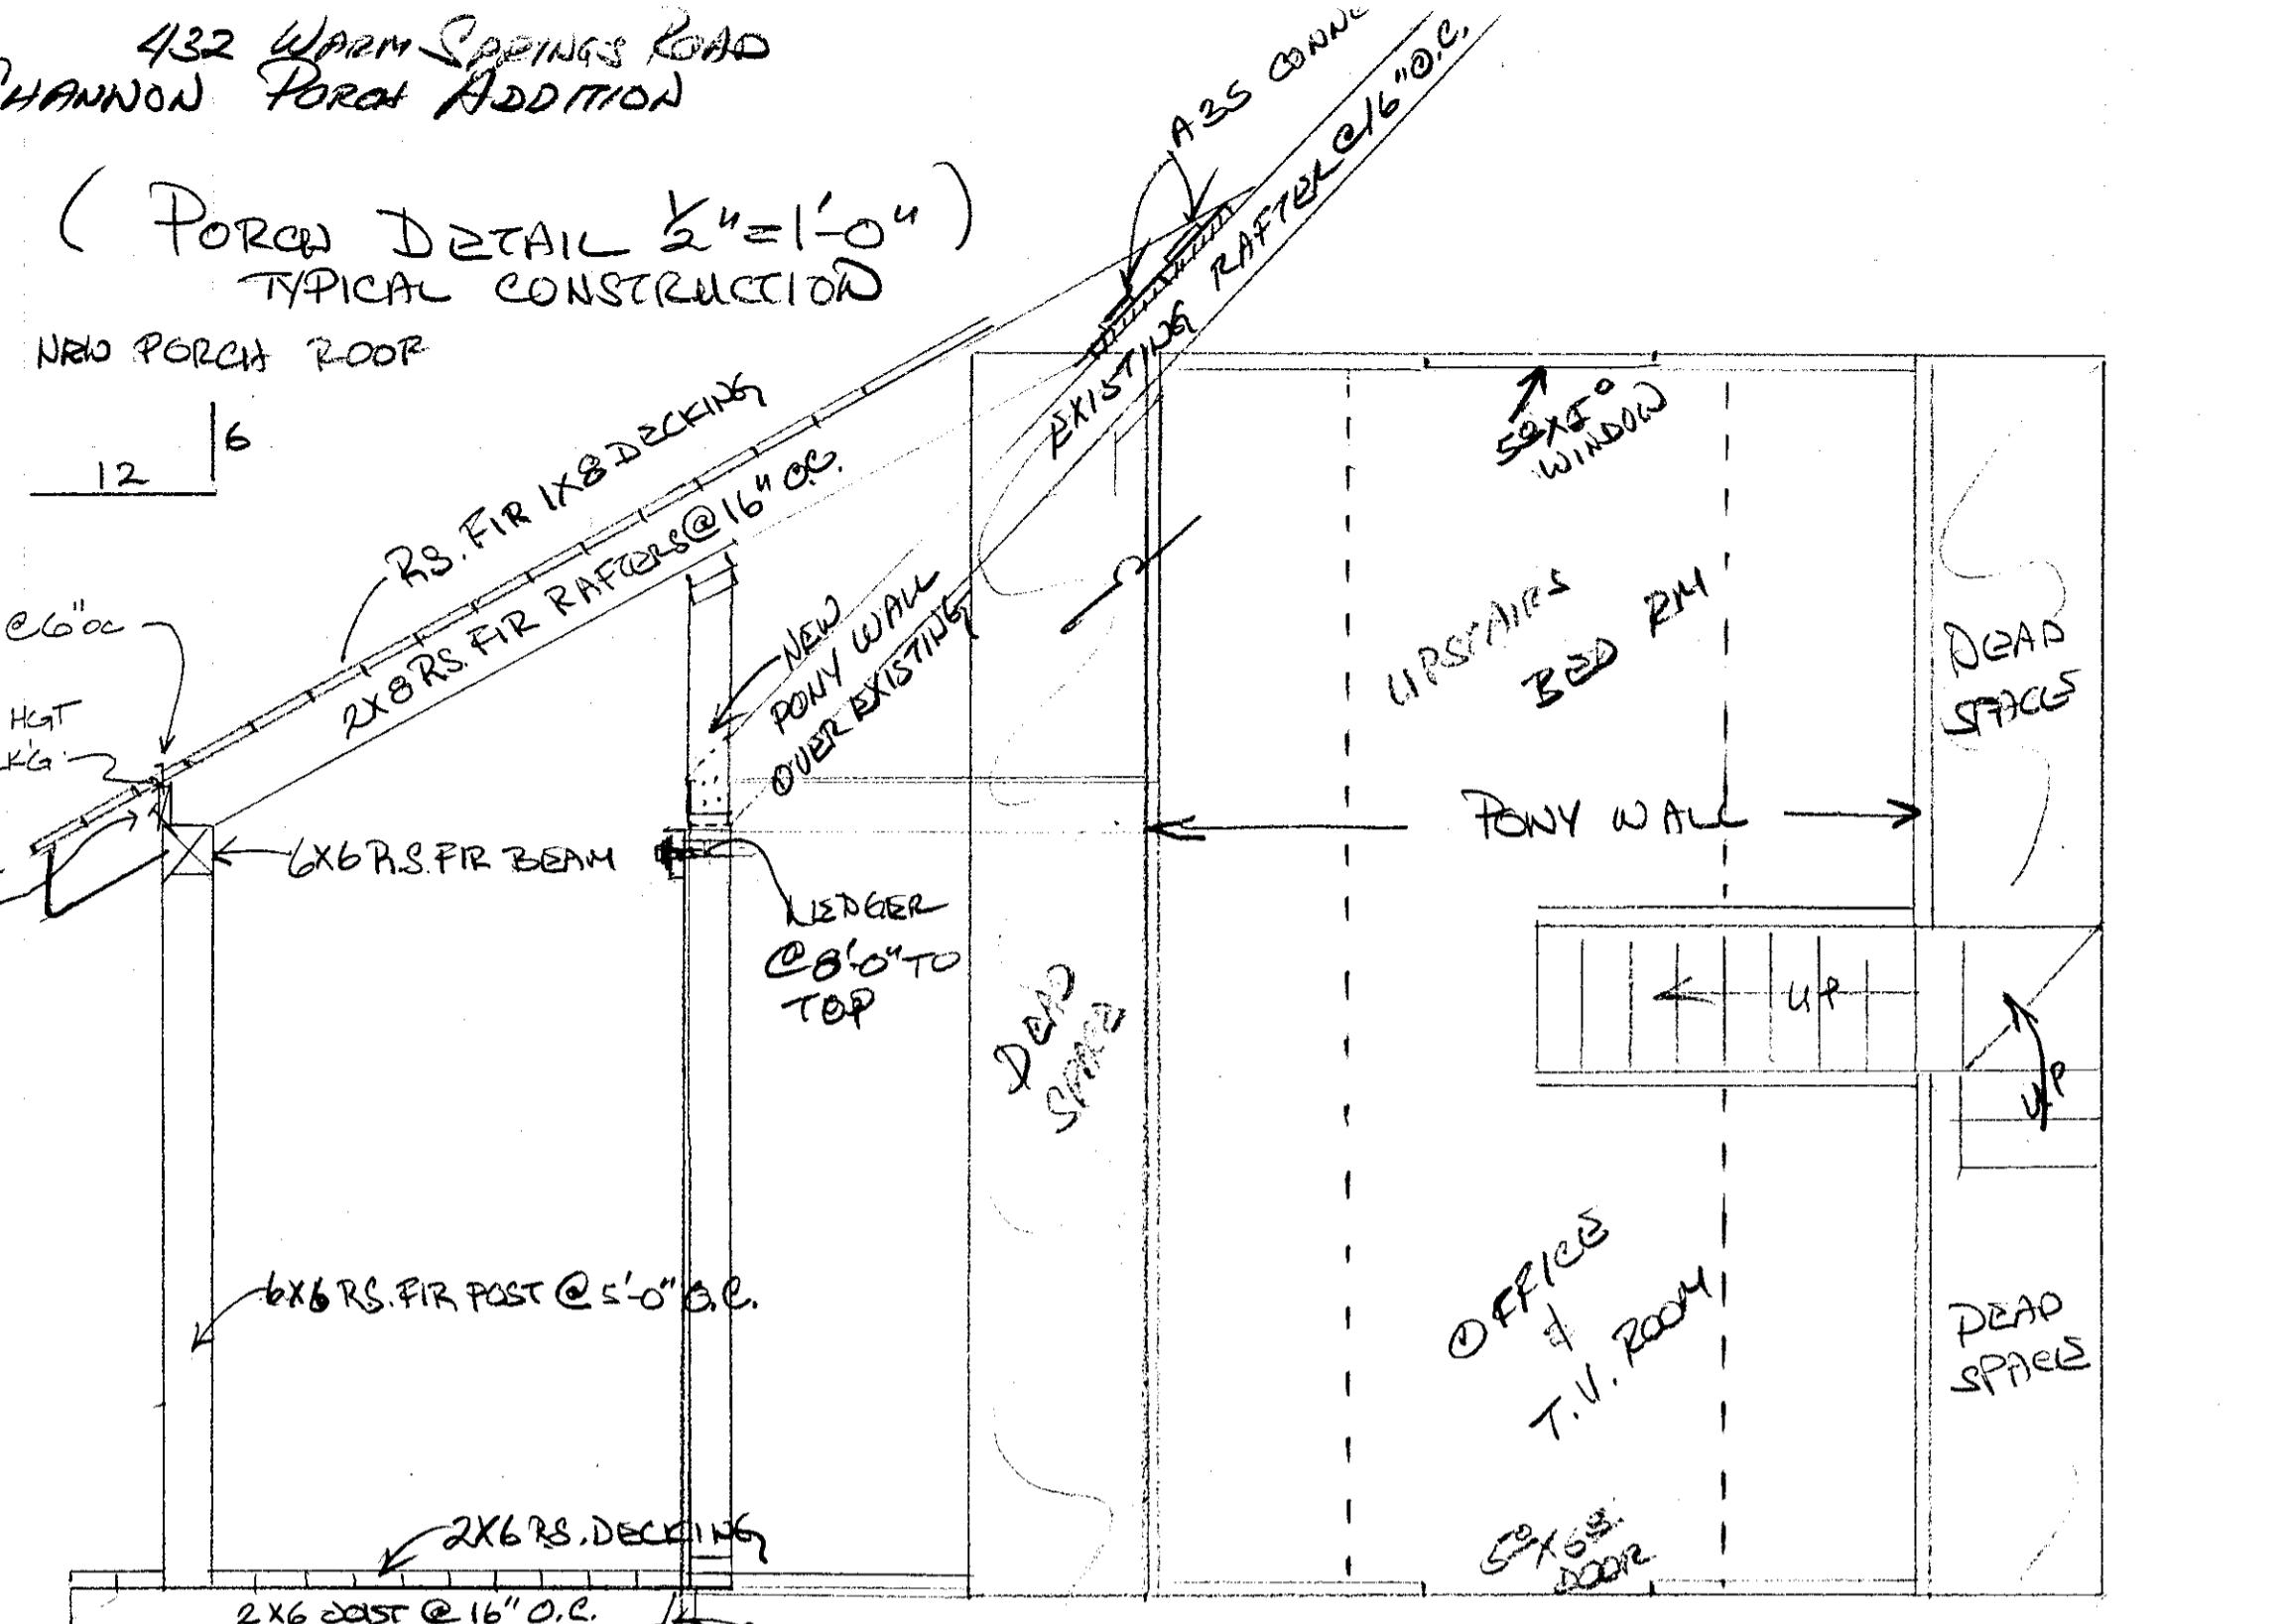 432 WARM SPRINGS ROAD
SHANNON PORCH ADDITION
( PORCH DETAIL 1/2"=1'-0" )
TYPICAL CONSTRUCTION
NEW PORCH ROOF
6
12
A35
EXISTING RAFTER @16" O.C.
RS. FIR 1X8 DECKING
2X8 RS. FIR RAFTERS @ 16" O.C.
@6" OC
HGT
NEW
PONY WALL
OVER EXISTING
6X6 R.S. FIR BEAM
LEDGER
@ 8'-0" TO
TOP
6X6 RS. FIR POST @ 5'-0" O.C.
2X6 RS. DECKING
2X6 JOIST @ 16" O.C.
DEAD
SPACE
WINDOW
UPSTAIRS
BED RM
DEAD
SPACE
PONY WALL
UP
UP
OFFICE
&
T.V. ROOM
DEAD
SPACE
DOOR